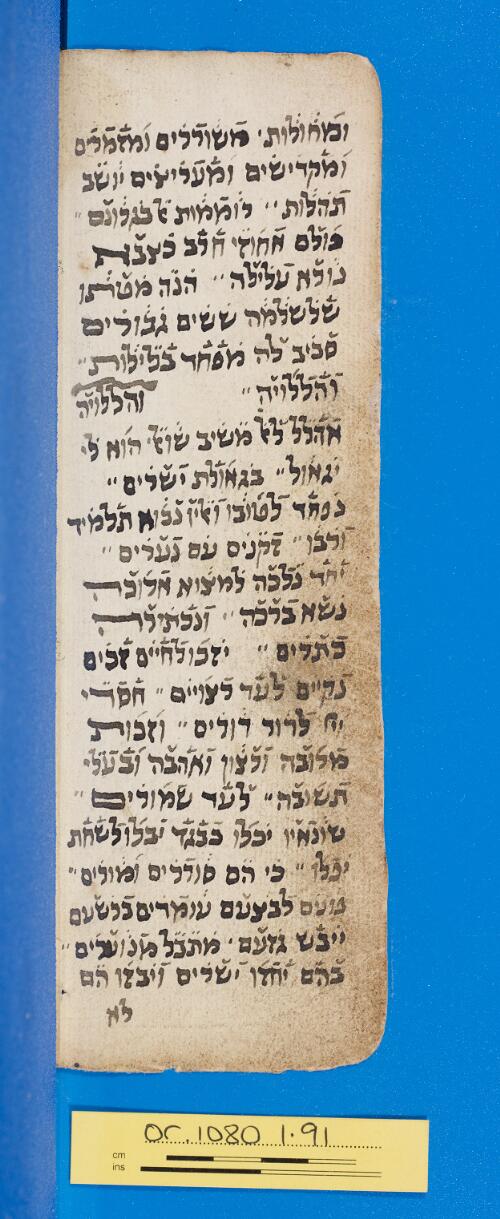 ומחולות׳ משוררים ומזמרים
ומקדישים ומעריצים יושב
תהלות ׳׳ רוממות אל בגרונם ׳׳
כולם אחוזי חרב
נורא עלילה ׳׳ הנה מטתו
שלשלמה ששים גבורים
סביב לה מפחד בלילות ׳׳
והללויה ׳׳ והללויה
אהלל לאל משיב שופטי הוא לי
יגאול ׳׳ בגאולת ישרים ׳׳
נפחד לטובו תלמיד
ורבו ׳׳ זקנים עם נערים ׳׳
יחד נלכה למצוא ארוכה
נשא ברכה ׳׳
כתרים ׳׳ יזכו לחיים זכים
נקיים לעד רצויים ׳׳ חסדי
יי לדור דורים ׳׳ וזכות
מרובה ורצון ואהבה ובעלי
תשובה ׳׳ לעד שמורים ׳׳
שונאיו יכלו כבגד יבלו לשחת
יבלו ׳׳ כי הם סוררים ומורים ׳׳
נועם לבצעם עומרים ברשעם
וייבש גזעם׳
בהם יחזו ישרים ויבזו הם
לא
or.1080 1.91
cm
ins